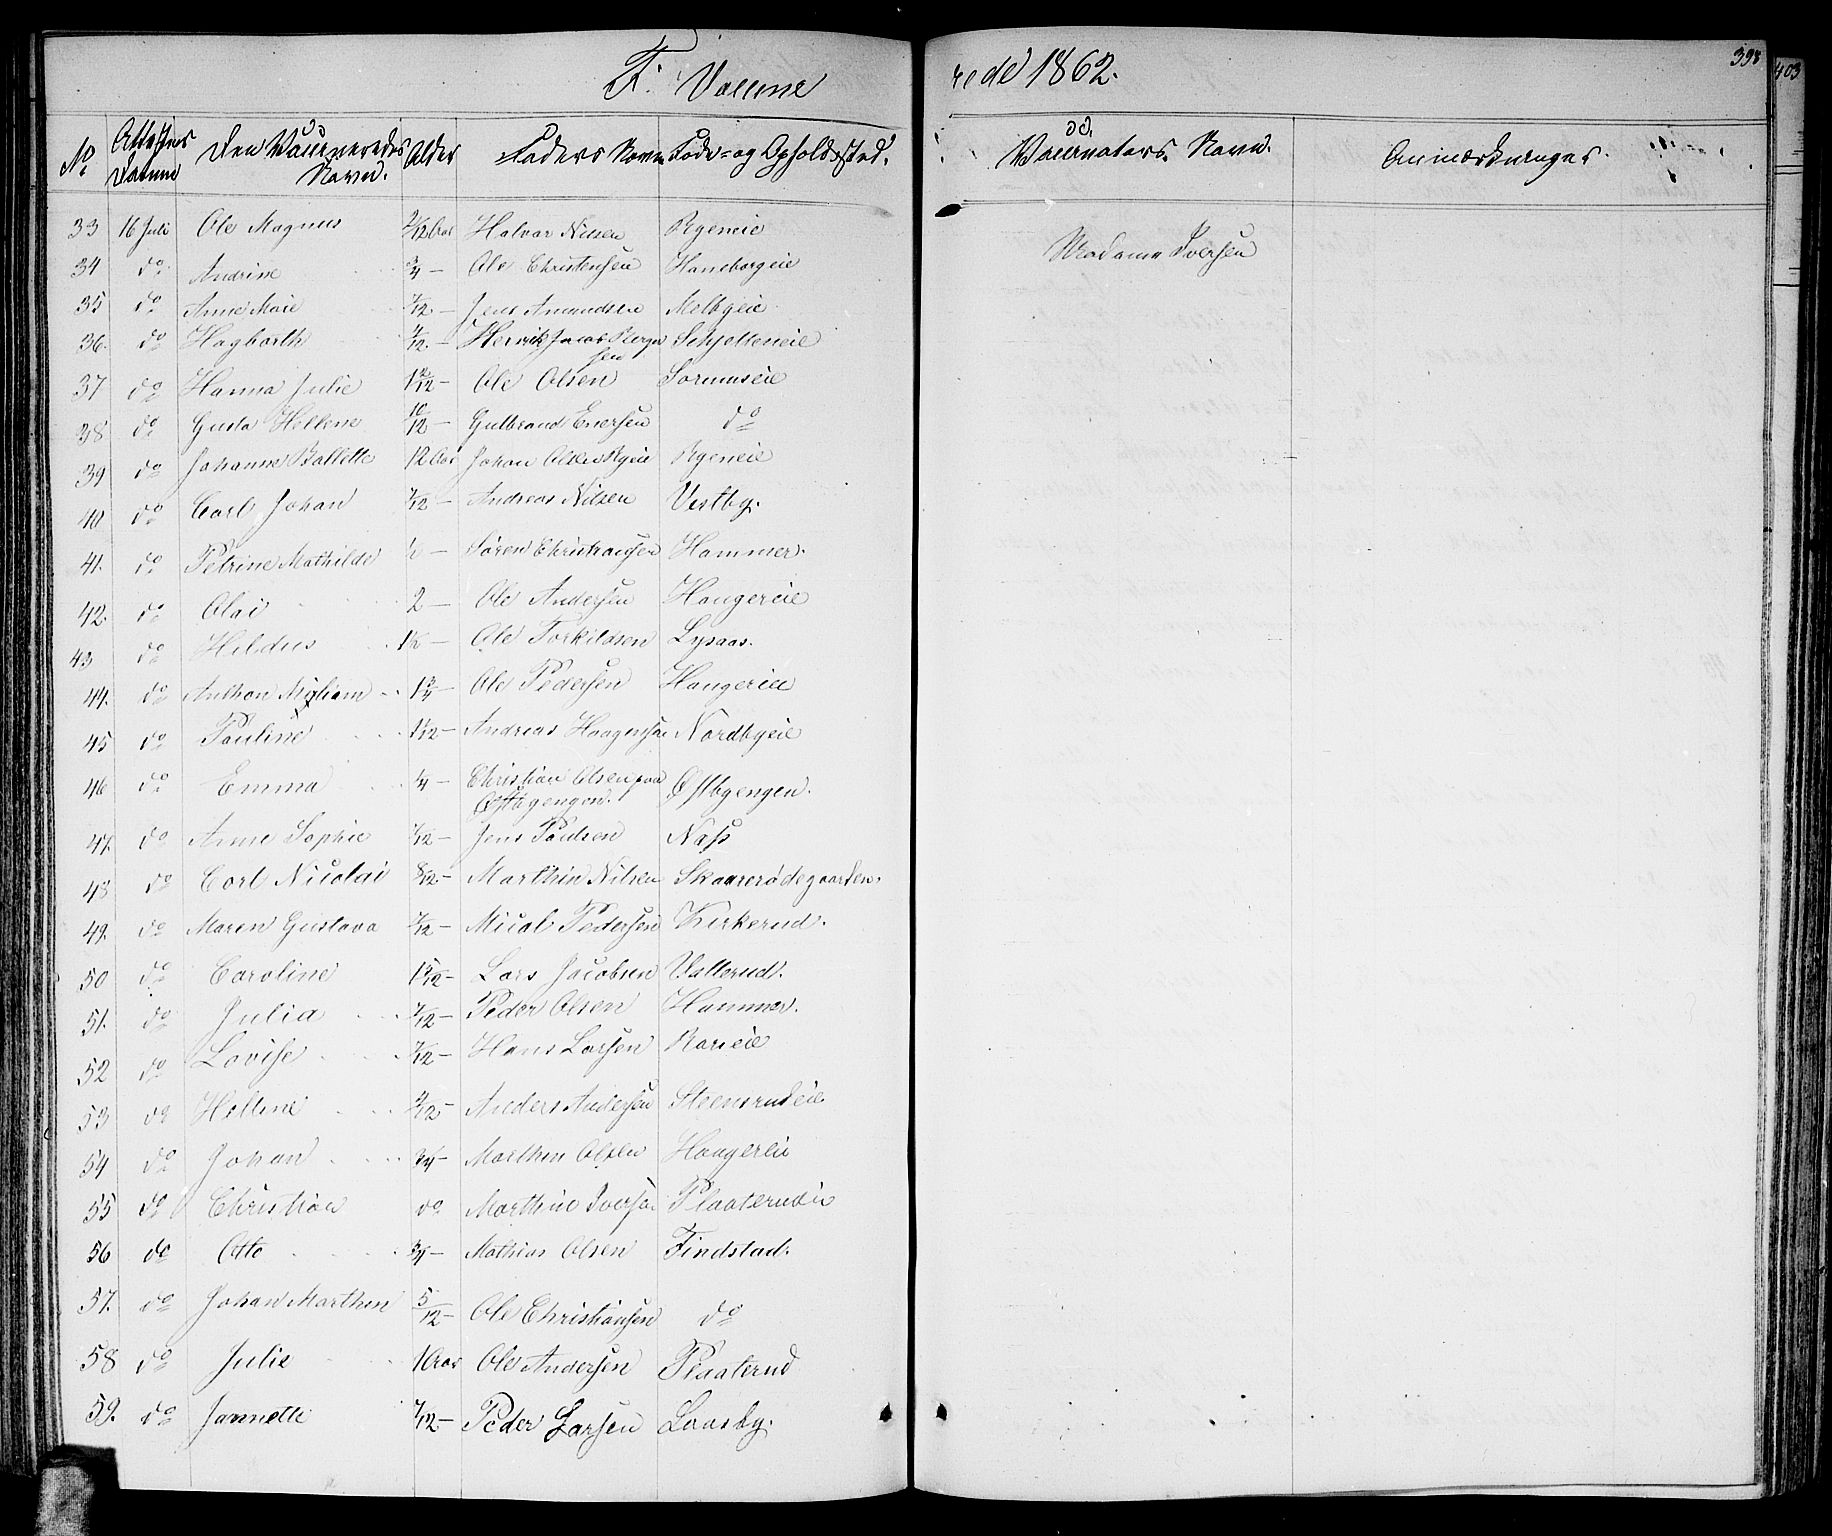 F. Vaccinerede 1862.
398
403
No Attestens Datum Den Vaccineredes Navn. Alder Faders Navn Føde- og Opholdssted. Vaccinators Navn. Anmærkninger.
33 16 Juli Ole Magnus 9/12 Aar Halvor Nilsen Ryeneie Madame Iversen
34 do Andrine 3/4 — Ole Christensen Haneborgeie
35 do Anne Marie 7/12 — Jens Amundsen Melbyeie
36. do Hagbarth 7/12 — Henrik Jacob Bergersen Schjetteneie
37 do Hanna Julie — Ole Olsen Sørumseie
38 do Gusta Hellene 10/12 — Gulbrand Enersen do
39 do Johanne Ballette 12 Aar Johan Olsen Ryeie Ryeneie
40 do Carl Johan 7/12 — Andreas Nilsen Vestby.
41. do Petrine Mathilde — Søren Christiansen Hammer.
42. do Olai 2 — Ole Andersen Haugereie
43 do Hildus — Ole Torkildsen Lysaas.
44. do Anthon 1 3/4 — Ole Pedersen Haugereie
45 do Pauline 1 1/12 — Andreas Haagensen Nordbyeie
46 do Emma — Christian Olsen paa Østbyengen. Østbyengen.
47. do Anne Sophie 7/12 — Jens Paulsen Næss
48 do Carl Nicolai 8/12 — Marthin Nilsen Skaarerødegaarden.
49. do Maren Gustava 7/12 — Mical Pedersen Kirkerud.
50 do Caroline 1 5/12 — Lars Jacobsen Vallerud.
51. do Julia 7/12 — Peder Olsen Hammer.
52 do Lovise 7/12 — Hans Larsen Raneie
53 do Helline 9/12 — Anders Andersen Steensrudeie
54 do Johan 3/4 — Marthin Olsen Haugereie
55 do Christian do Marthin Iversen Plaaterudeie
56 do Otto 3/4 — Mathias Olsen Finstad.
57. do Johan Marthin 5/12 — Ole Christiansen do
58 do Julie 1 Aar Ole Andersen Plaaterud
59. do Jannette 7/12 — Peder Larsen Laasby.